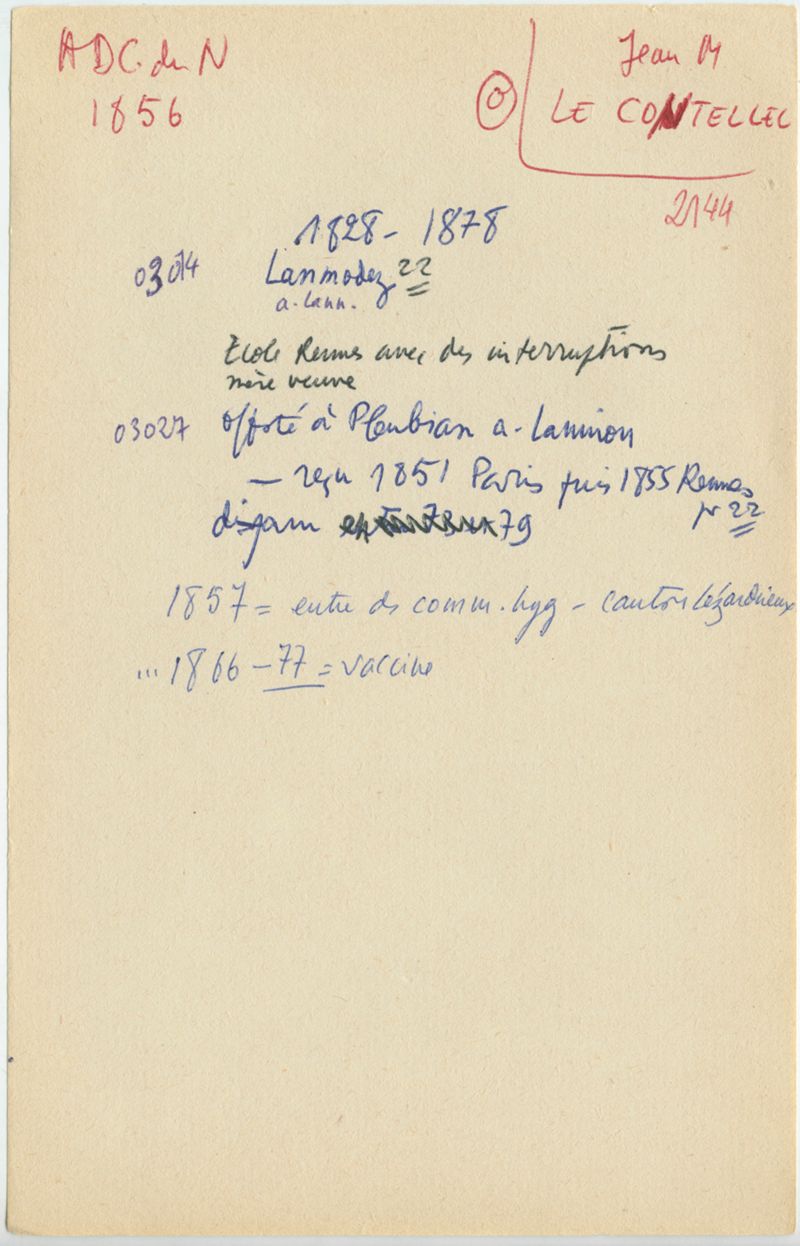 ADC. du N
1856
Jean M
O LE CONTELLEC
2144
1828 - 1878
03014 Lanmodez 22
a. Lann.
Ecole Rennes avec des interruptions
mère veuve
03027 off santé à Pleubian a - Lannion
— reçu 1851 Paris puis 1855 Rennes
pr 22
disparu 79
1857 = entre ds comm. hyg - canton Lézardrieux
... 1866 - 77 = vaccine